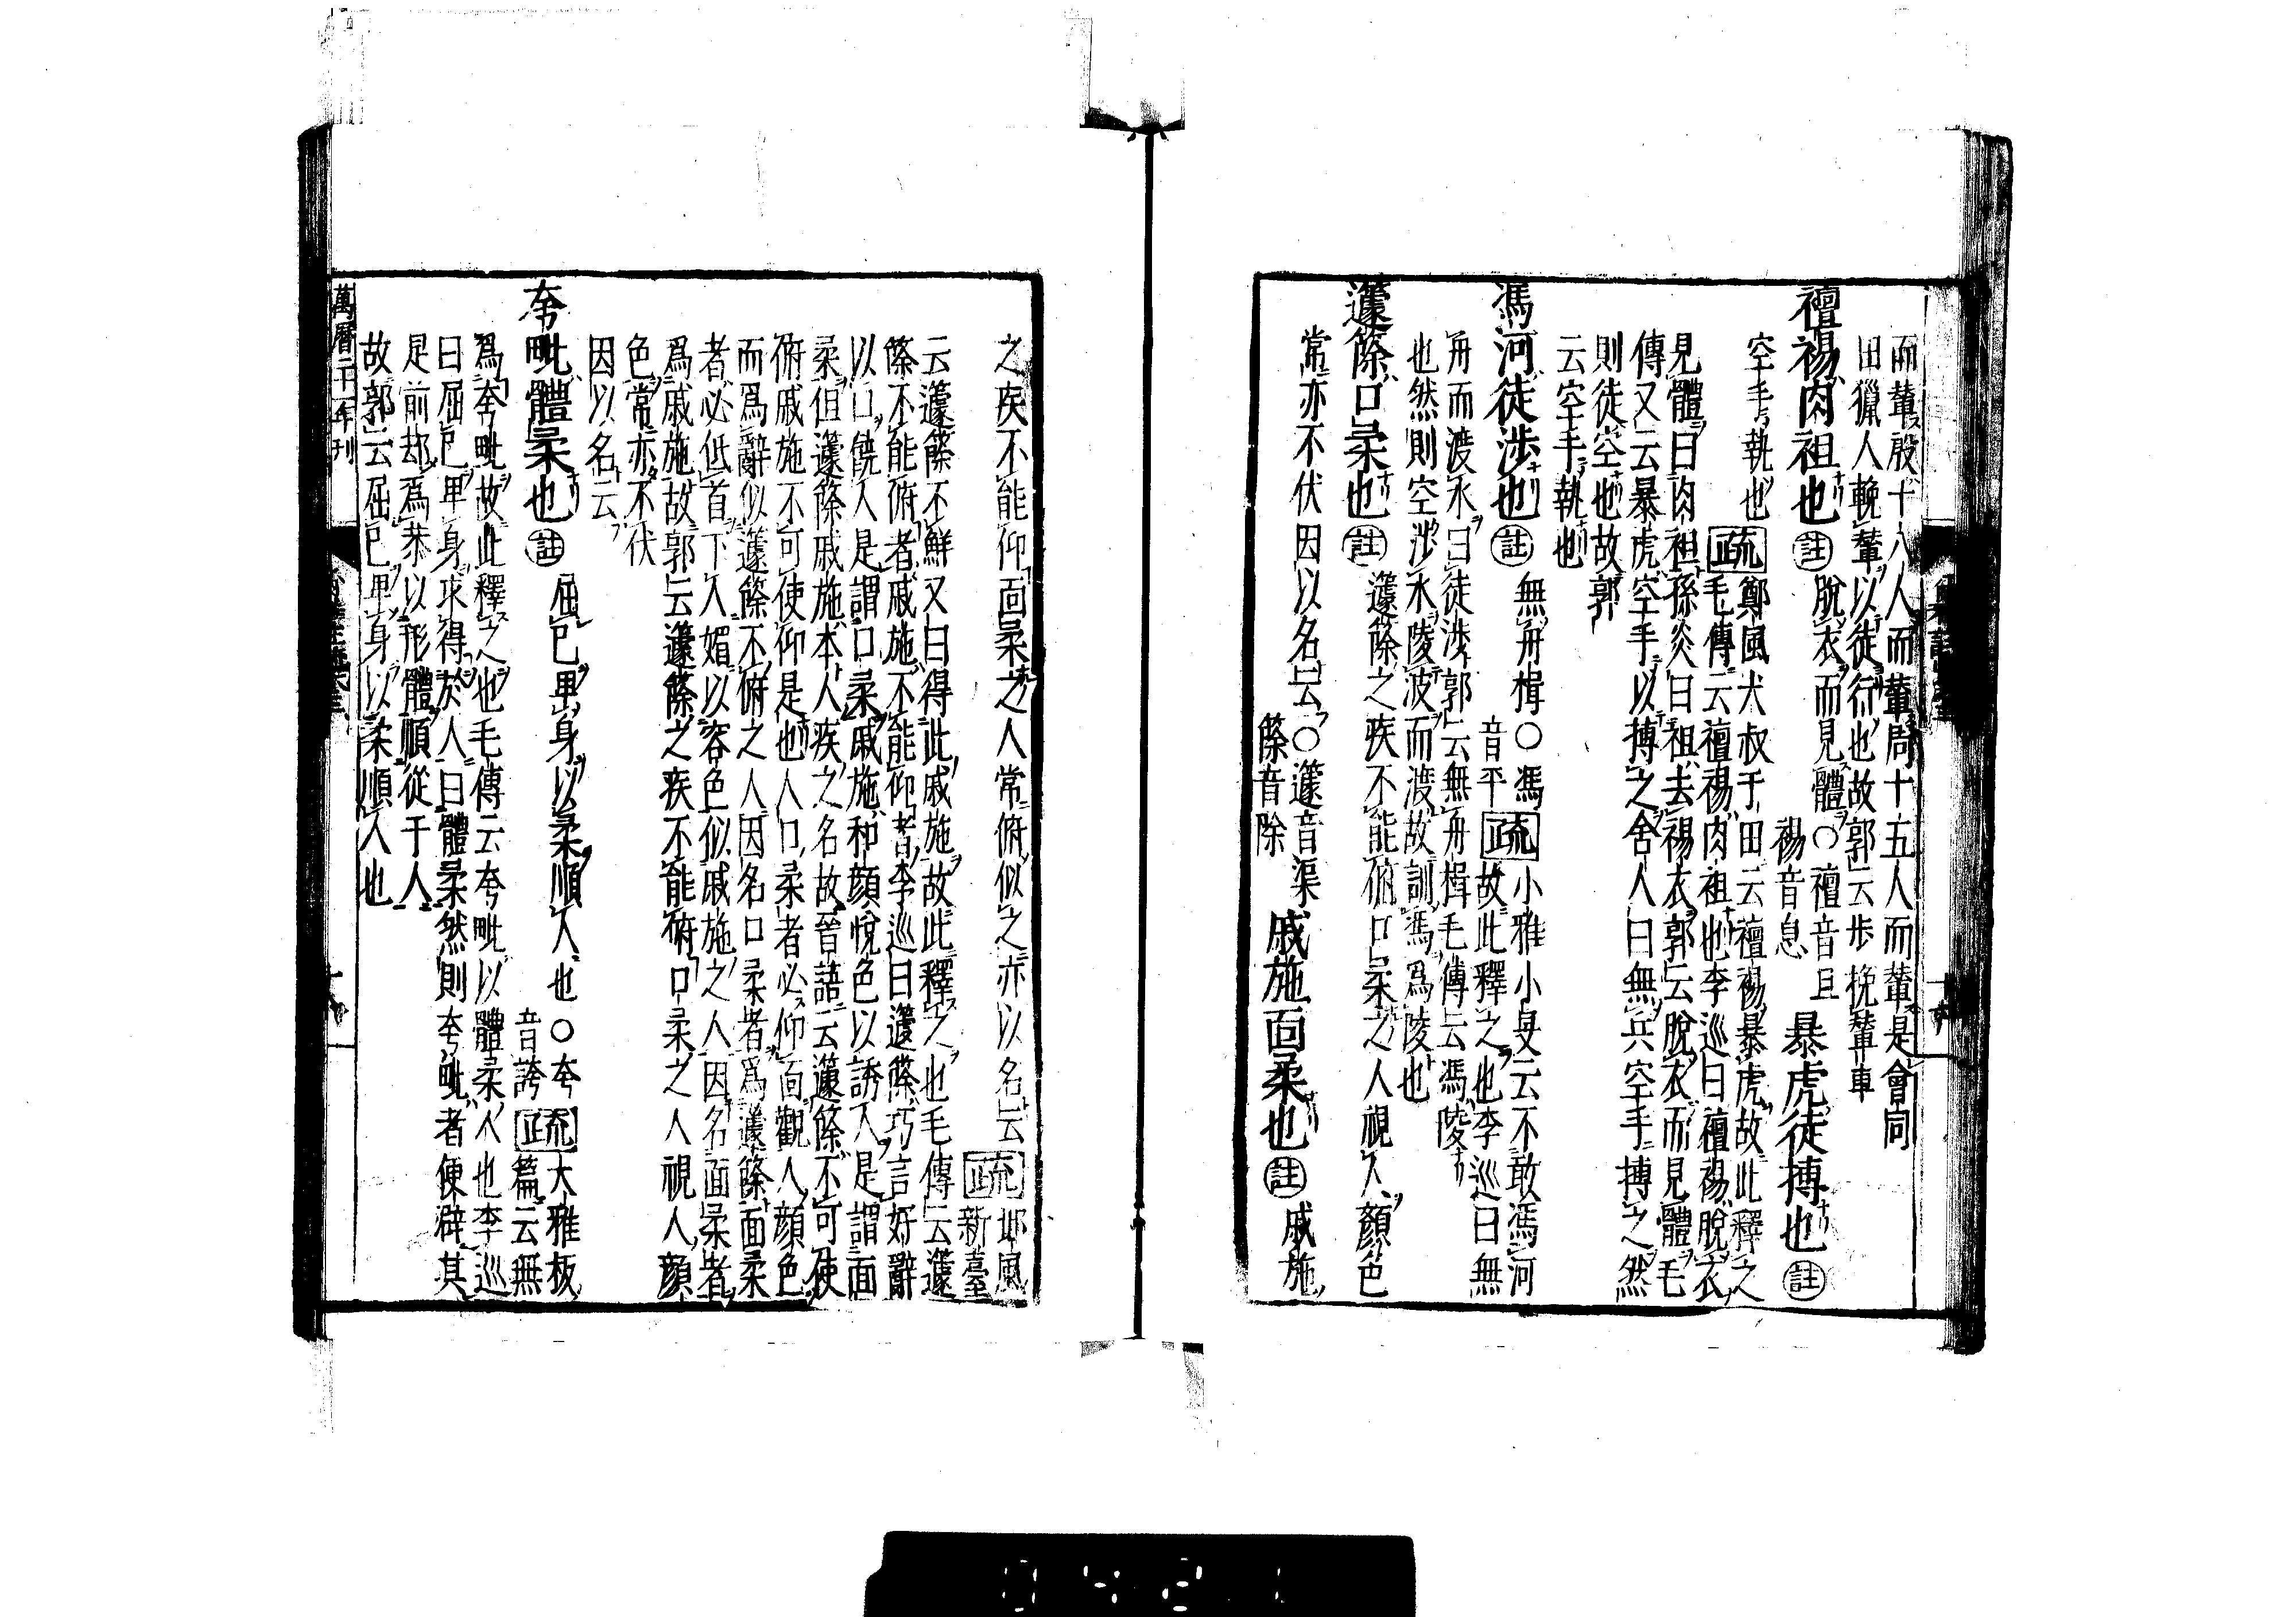 而輦殷十八人而輦周十五人而輦是會同
田獵人輓輦以徒行也故郭云步挽輦車
襢裼肉袒也註脫衣而見體○襢音且
裼音息
暴虎徒搏也註
空手執也疏鄭風大叔于田云襢裼暴虎故此釋之
毛傳云襢裼肉袒也李巡曰襢裼脫衣
見體曰肉袒孫炎曰袒去裼衣郭云脫衣而見體毛
傳又云暴虎空手以搏之舍人曰無兵空手搏之然
則徒空也故郭
云空手執也
馮河徒涉也註無舟楫○馮
音平疏小雅小旻云不敢馮河
故此釋之也李巡曰無
舟而渡水曰徒涉郭云無舟楫毛傳云馮陵
也然則空涉水陵波而渡故訓馮爲陵也
籧篨口柔也註籧篨之疾不能俯口柔之人視人顏色
常亦不伏因以名云○籧音渠
篨音除
戚施面柔也註戚施
之疾不能仰面柔之人常俯似之亦以名云疏邶風
新臺
云籧篨不鮮又曰得此戚施故此釋之也毛傳云籧
篨不能俯者戚施不能仰者李巡曰籧篨巧言好辭
以口饒人是謂口柔戚施和顏悅色以誘人是謂面
柔但籧篨戚施本人疾之名故晉語云籧篨不可使
俯戚施不可使仰是也人口柔者必仰面觀人顏色
而爲辭似籧篨不俯之人因名口柔者爲籧篨面柔
者必低首下人媚以容色似戚施之人因名面柔者
爲戚施故郭云籧篨之疾不能俯口柔之人視人顏
色常亦不伏
因以名云
夸毗體柔也註屈已卑身以柔順人也○夸
音誇疏大雅板
篇云無
爲夸毗故此釋之也毛傳云夸毗以體柔人也李巡
曰屈已卑身求得於人曰體柔然則夸毗者便辟其
是前却爲恭以形體順從于人
故郭云屈已卑身以柔順人也
萬曆二十一年刊
0421